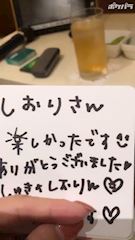 しおりさん
楽しかったです
ありがとうございました
しゅきぴしおりん
す